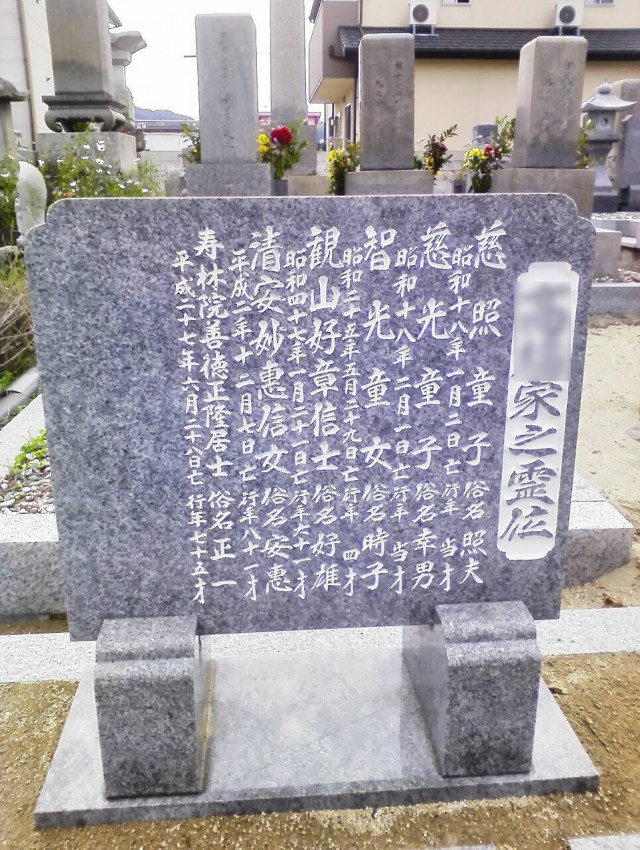 家之霊位
慈照童子 俗名 照夫
昭和十八年一月二日亡 行年 当才
慈光童子 俗名 幸男
昭和十八年二月一日亡 行年 当才
智光童女 俗名 時子
昭和二十五年五月二十九日亡 行年 四才
観山好章信士 俗名 好雄
昭和四十七年一月二十一日亡 行年六十一才
清安妙惠信女 俗名 安惠
平成二年十二月七日亡 行年八十一才
寿林院善徳正隆居士 俗名 正一
平成二十七年六月二十八日亡 行年七十五才